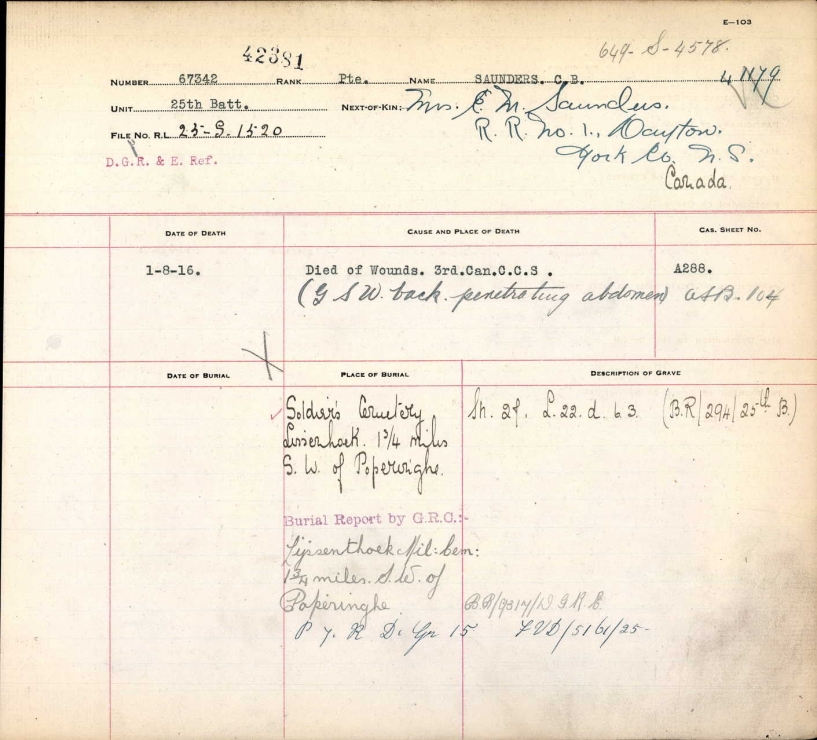 E—103
42381
649- S-4578.
NUMBER 67342 RANK Pte. NAME SAUNDERS. C.B.
UNIT 25th Batt. NEXT-OF-KIN: Mrs. E. M. Saunders.
R. R. No. 1., Dayton.
FILE NO. R.L. 25-S. 1520
York Co. N.S.
D.G.R. & E. Ref.
Canada.
DATE OF DEATH CAUSE AND PLACE OF DEATH CAS. SHEET NO.
1-8-16. Died of Wounds. 3rd.Can.C.C.S . A288.
(G S W. back. penetrating abdomen)
DATE OF BURIAL PLACE OF BURIAL DESCRIPTION OF GRAVE
Soldier's Cemetery Sh. 28. L. 22. d. 6.3. (B.R/294/25th B.)
Lissenhoek. 1 3/4 miles
S. W. of Poperinghe.
Burial Report by G.R.C.:-
Lijssenthoek Mil: Cem:
1 3/4 miles. S.W. of
Poperinghe
Gr 15